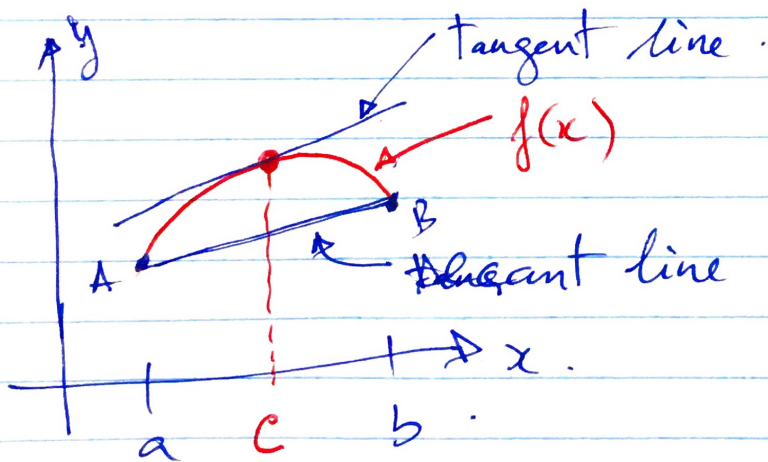 y
tangent line.
f(x)
B
A
secant line
x.
a
c
b